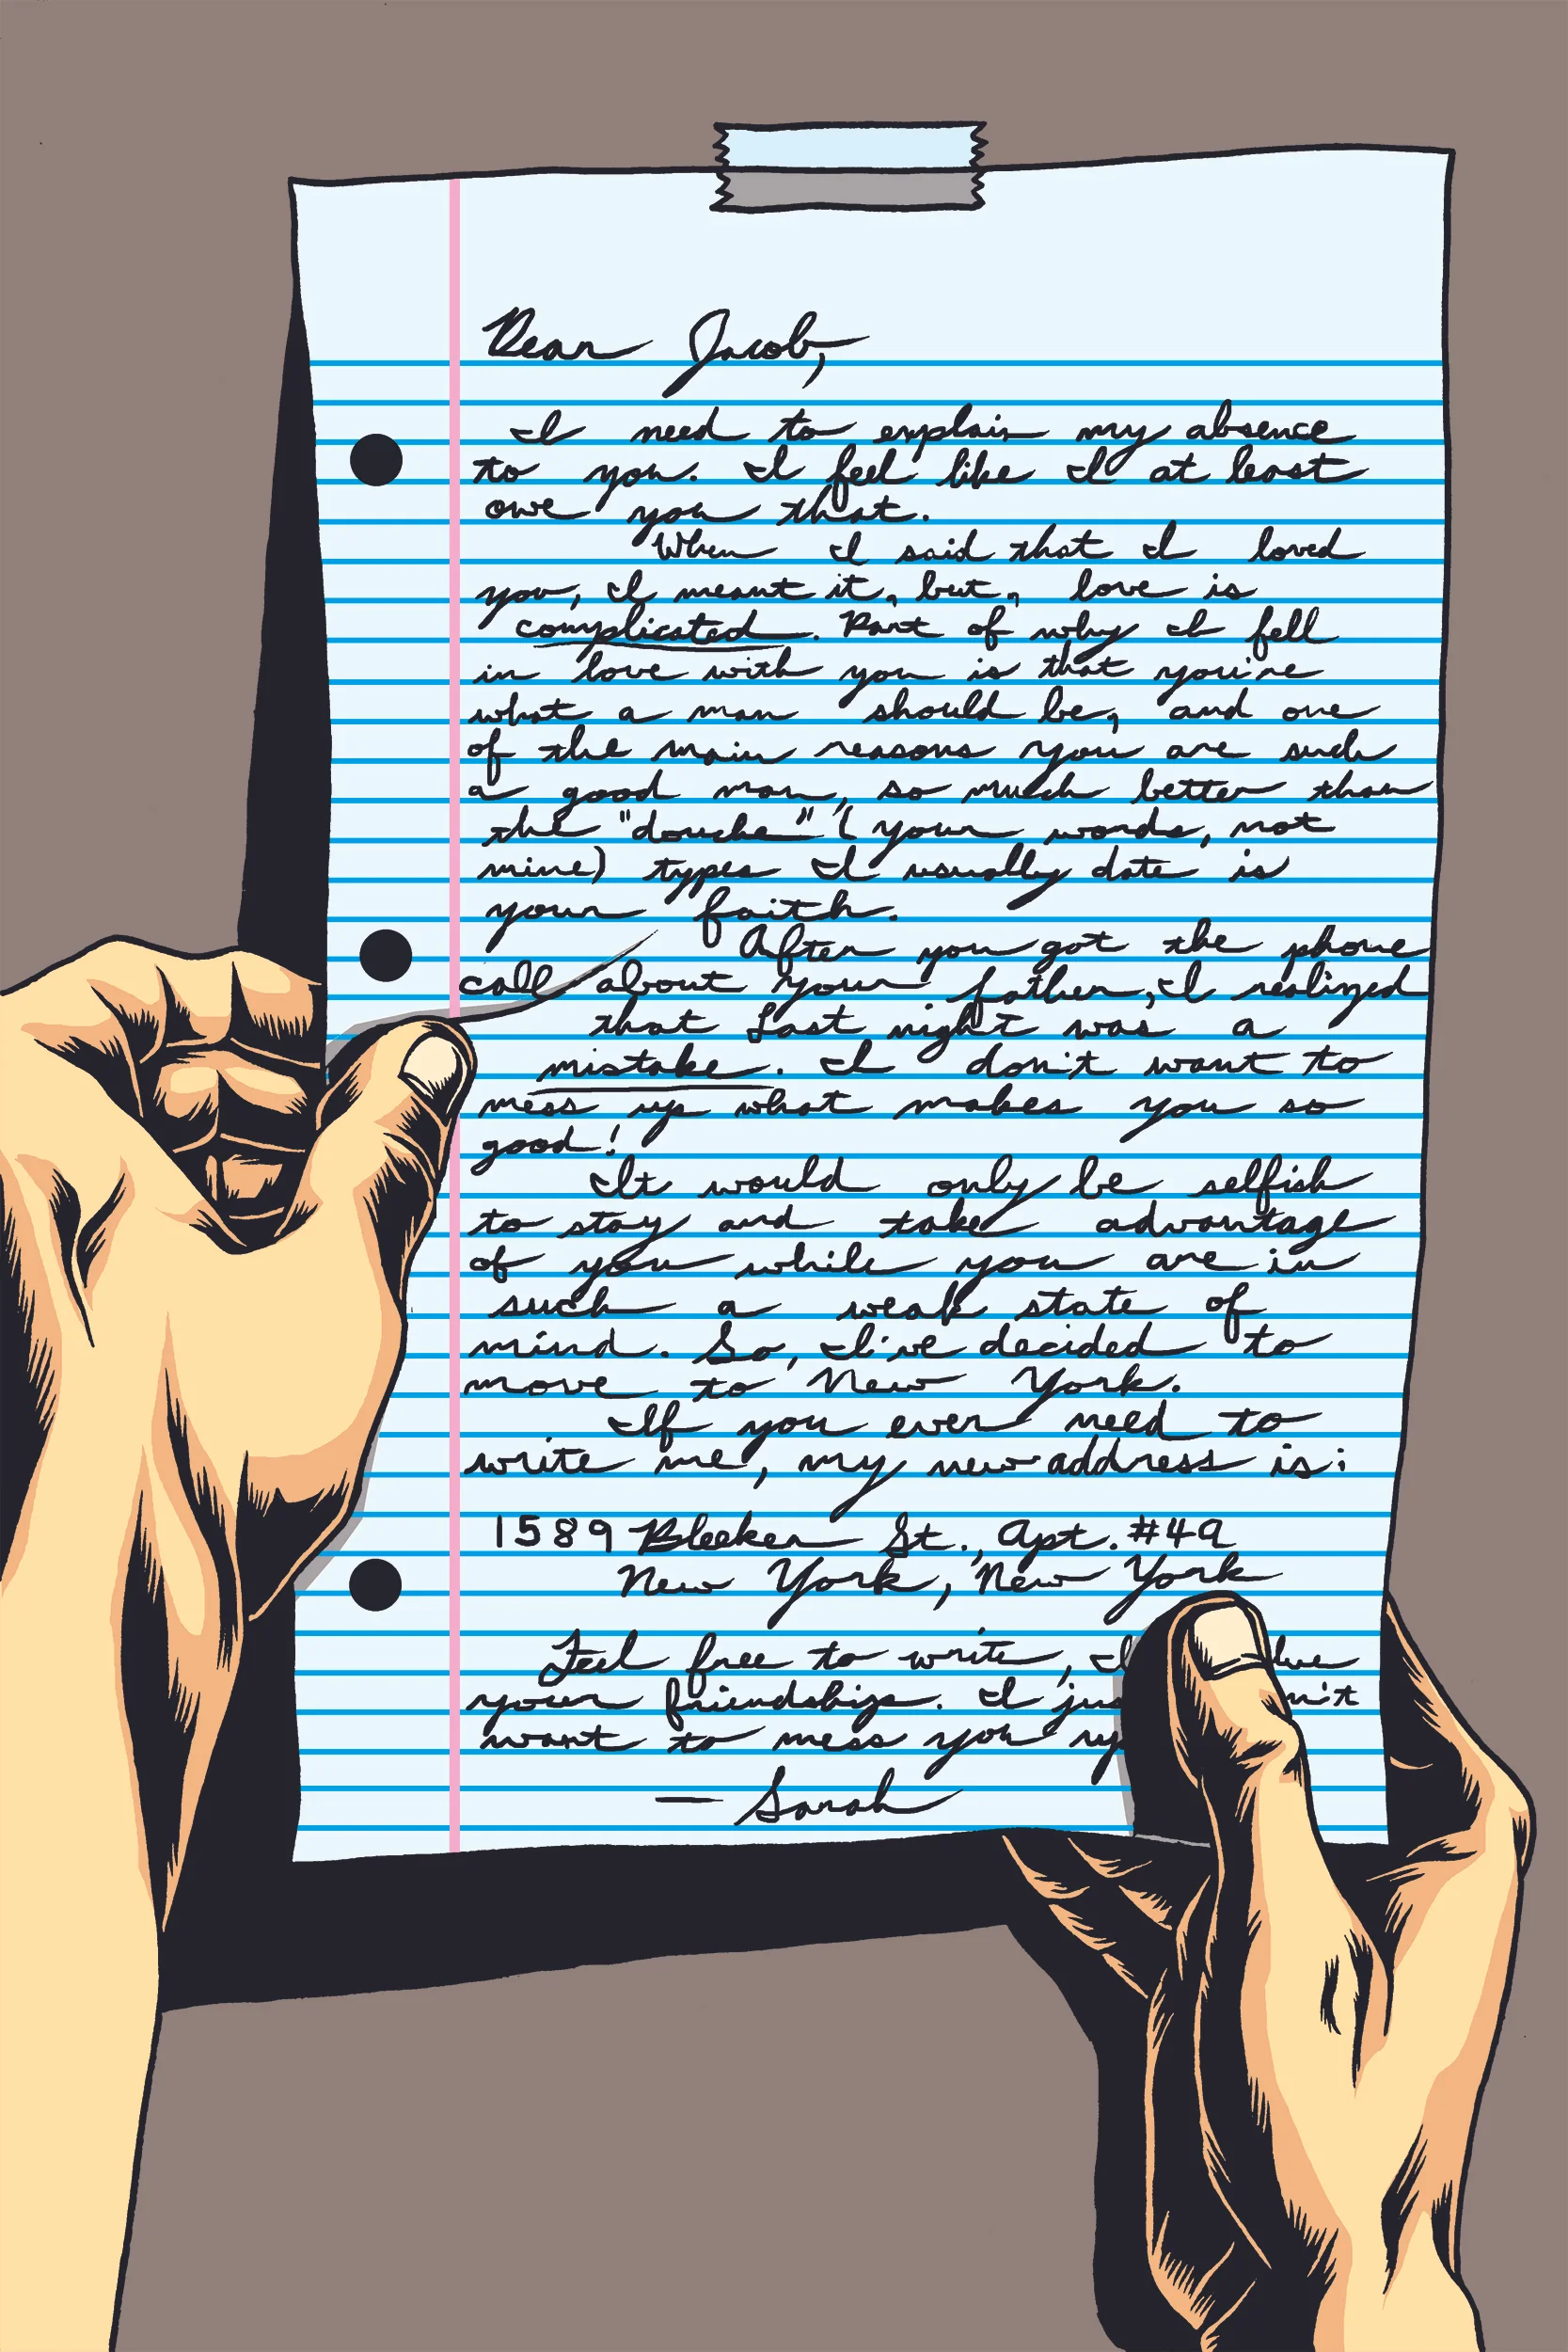 Dear Jacob,
I need to explain my absence
to you. I feel like I at least
owe you that.
When I said that I loved
you, I meant it, but, love is
complicated. Part of why I fell
in love with you is that you're
what a man should be, and one
of the main reasons you are such
a good man, so much better than
the "douche" (your words, not
mine) types I usually date is
your faith.
After you got the phone
call about your father, I realized
that last night was a
mistake. I don't want to
mess up what makes you so
good!
It would only be selfish
to stay and take advantage
of you while you are in
such a weak state of
mind. So, I've decided to
move to New York.
If you ever need to
write me, my new address is:
1589 Bleeker St., Apt. #49
New York, New York
Feel free to write, I
your friendship. I
want to mess you
— Sarah